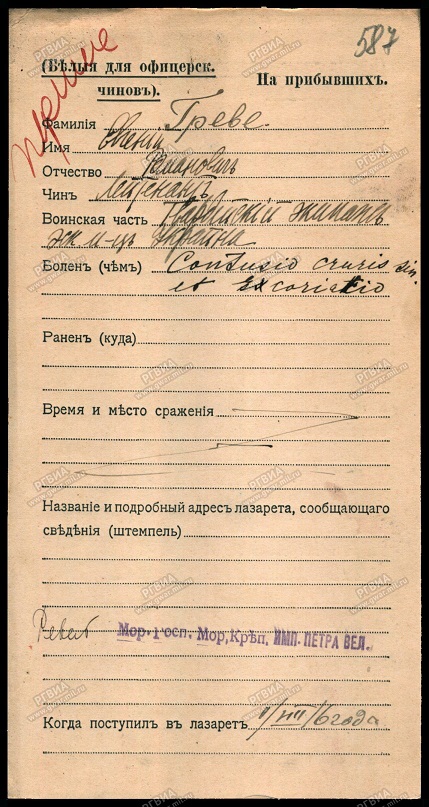 587
(Бѣлыя для офицерск.
чиновъ).
На прибывшихъ.
Фамилія Греве
Имя
Отчество Романовичъ
Чинъ Лейтенантъ
Воинская часть Гвардейскій экипажъ
эк м-цъ Украйна
Боленъ (чѣмъ) Contusio cruris sin.
et excoriatio
Раненъ (куда)
Время и мѣсто сраженія
Названіе и подробный адресъ лазарета, сообщающаго
свѣдѣнія (штемпель)
Ревель Мор. Госп. Мор. Крѣп. ИМП. ПЕТРА ВЕЛ.
Когда поступилъ въ лазаретъ 16 года
РГВИА
www.gwar.mil.ru